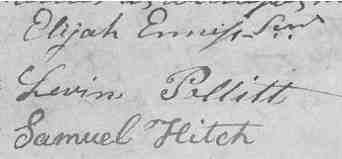 Elijah Ennis Senr
Levin Pollitt
Samuel Hitch